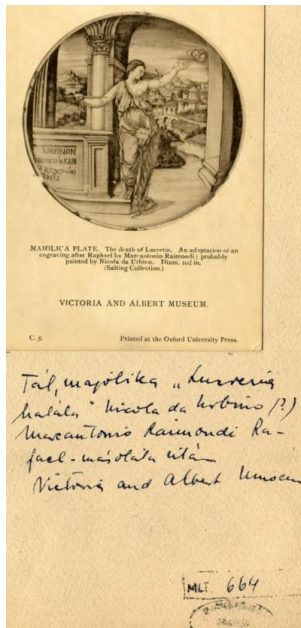 MAIOLICA PLATE. The death of Lucretia. An adaptation of an
engraving after Raphael by Marcantonio Raimondi; probably
painted by Nicola da Urbino. Diam. 10¾ in.
(Salting Collection.)
VICTORIA AND ALBERT MUSEUM.
C. 5. Printed at the Oxford University Press.
Tál, majolika „Lucrecia
halála" Nicola da Urbino (?)
Marcantonio Raimondi Ra-
fael-másolata után
Victoria and Albert Museum
MLT 664